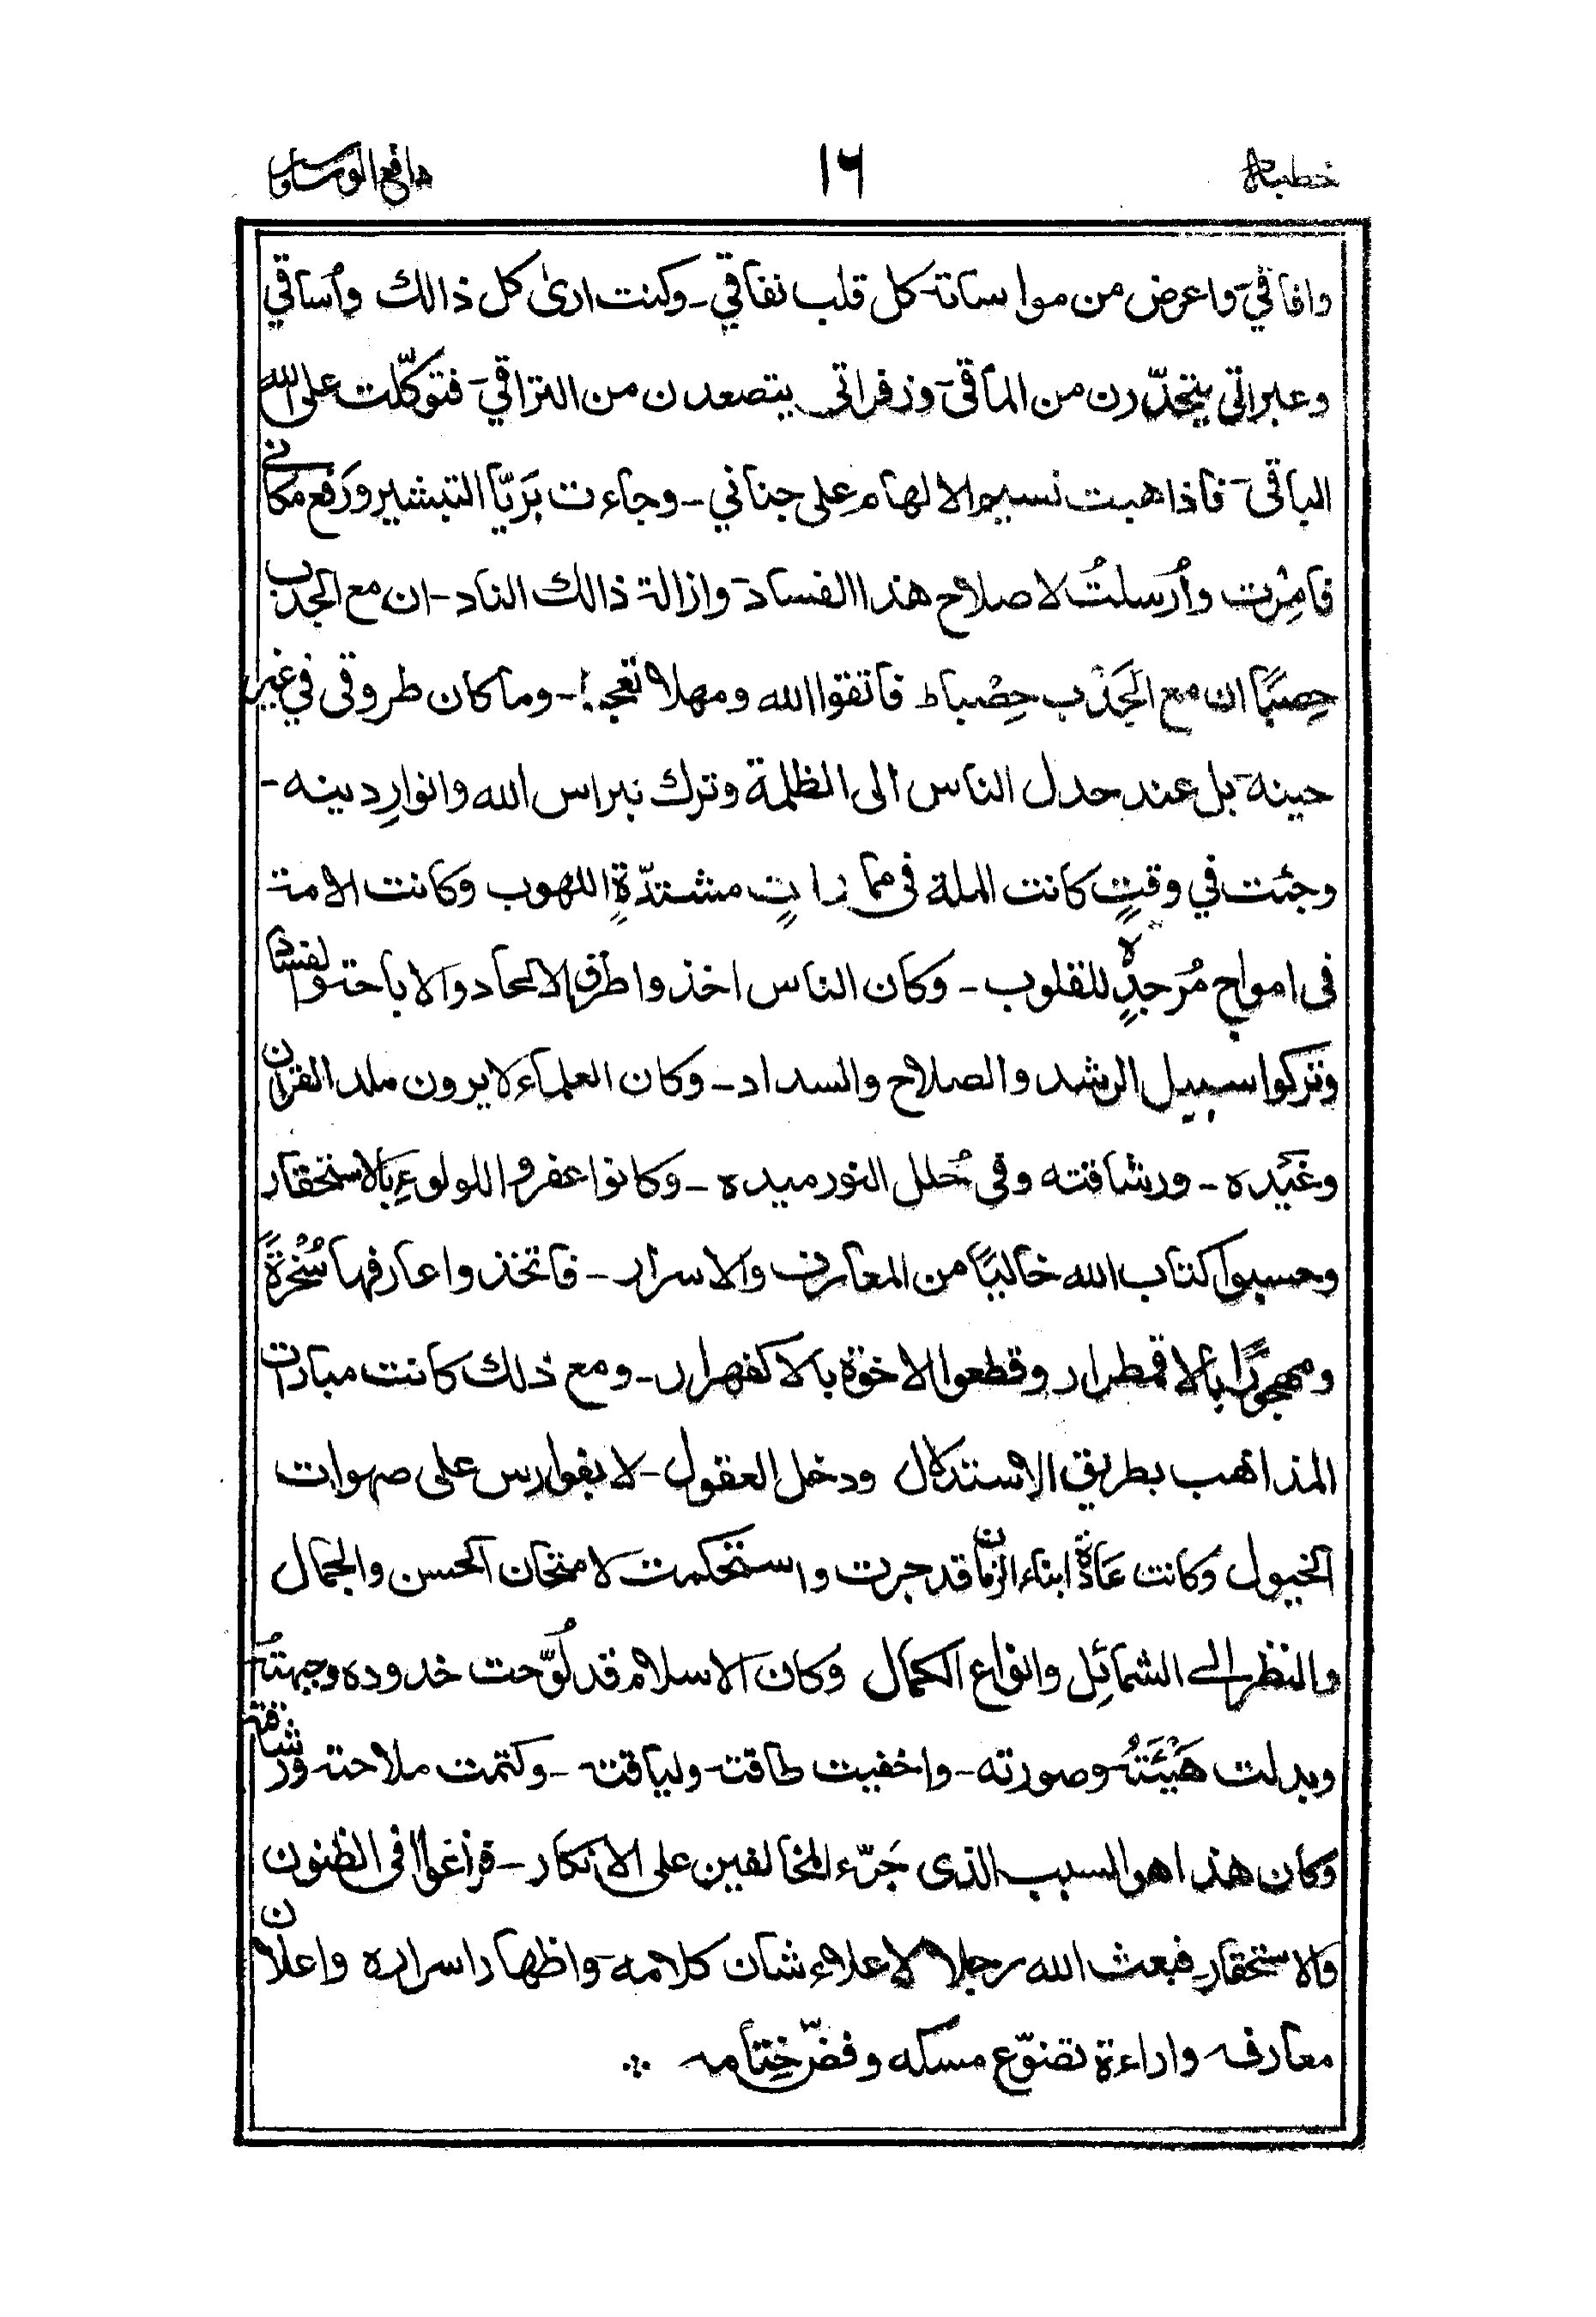 خطبہ ١٦ دافع الوساوس
وافاقي - واعرض من مواساتہ كل قلب نفاقي - وكنت ارىٰ كل ذالك وأساقي
وعبراتي يتحدّرن من المآقى - وزفراتى يتصعدن من التراقي - فتوكّلت على الله
الباقى - فاذا هبت نسيم الالهام على جناني - وجاءت بَريّا التبشير ورَفع مكاني
فامِرت وأُرسلتُ لاصلاح هذا الفساد - وازالة ذالك الناد - ان مع الجدب
خِصبًا ان مع الجَدْب خِصْبا ط فاتقوا الله ومهلا تعجبا - وما كان طروقى في غير
حينه - بل عند حدل الناس الى الظلمة وترك نبراس الله وانوارِ دينه -
وجئت في وقتٍ كانت الملة فى مماراتٍ مشتدّةِ اللهوب وكانت الامة
فى امواج مُرجدةٍ للقلوب - وكان الناس اخذوا طرق الالحاد والاباحة والفساد
وتركوا سبيل الرشد والصلاح والسداد - وكان العلماء لا يرون ملد القران
وغَيَده - ورشاقته وفى حُلل النور ميده - وكانوا عفروا اللولوء بالاستحقار
وحسبوا كتاب الله خاليًا من المعارف والاسرار - فاتخذوا عارفها سُخْرَةً
ومهجورًا بالاقمطرار وقطعوا الاخوّة بالاكفهرار - ومع ذٰلك كانت مبارات
المذاهب بطريق الاستدلال ودخل العقول - لا بفوارس على صهوات
الخيول وكانت عادة ابناء الزمان قد جرت واستحكمت لامتحان الحسن والجمال
والنظر الى الشمائِل وانواع الكمال وكان الاسلام قد لُوّحت خدوده وجبهتہ
وبدلت هَيْئَتُہ وصورته - واخفيت طاقتہ ولياقتہ - وكتمت ملاحتہ ورشاقتہ
وكان هذا هو السبب الذى جَرّء المخالفين على الانكار - فزاغوا فى الظنون
والاستحقار فبعث الله رجلا لاعلاء شان كلامه - واظهار اسراره واعلان
معارفہ واراءة تضوّع مسكه وفضّ ختامہ